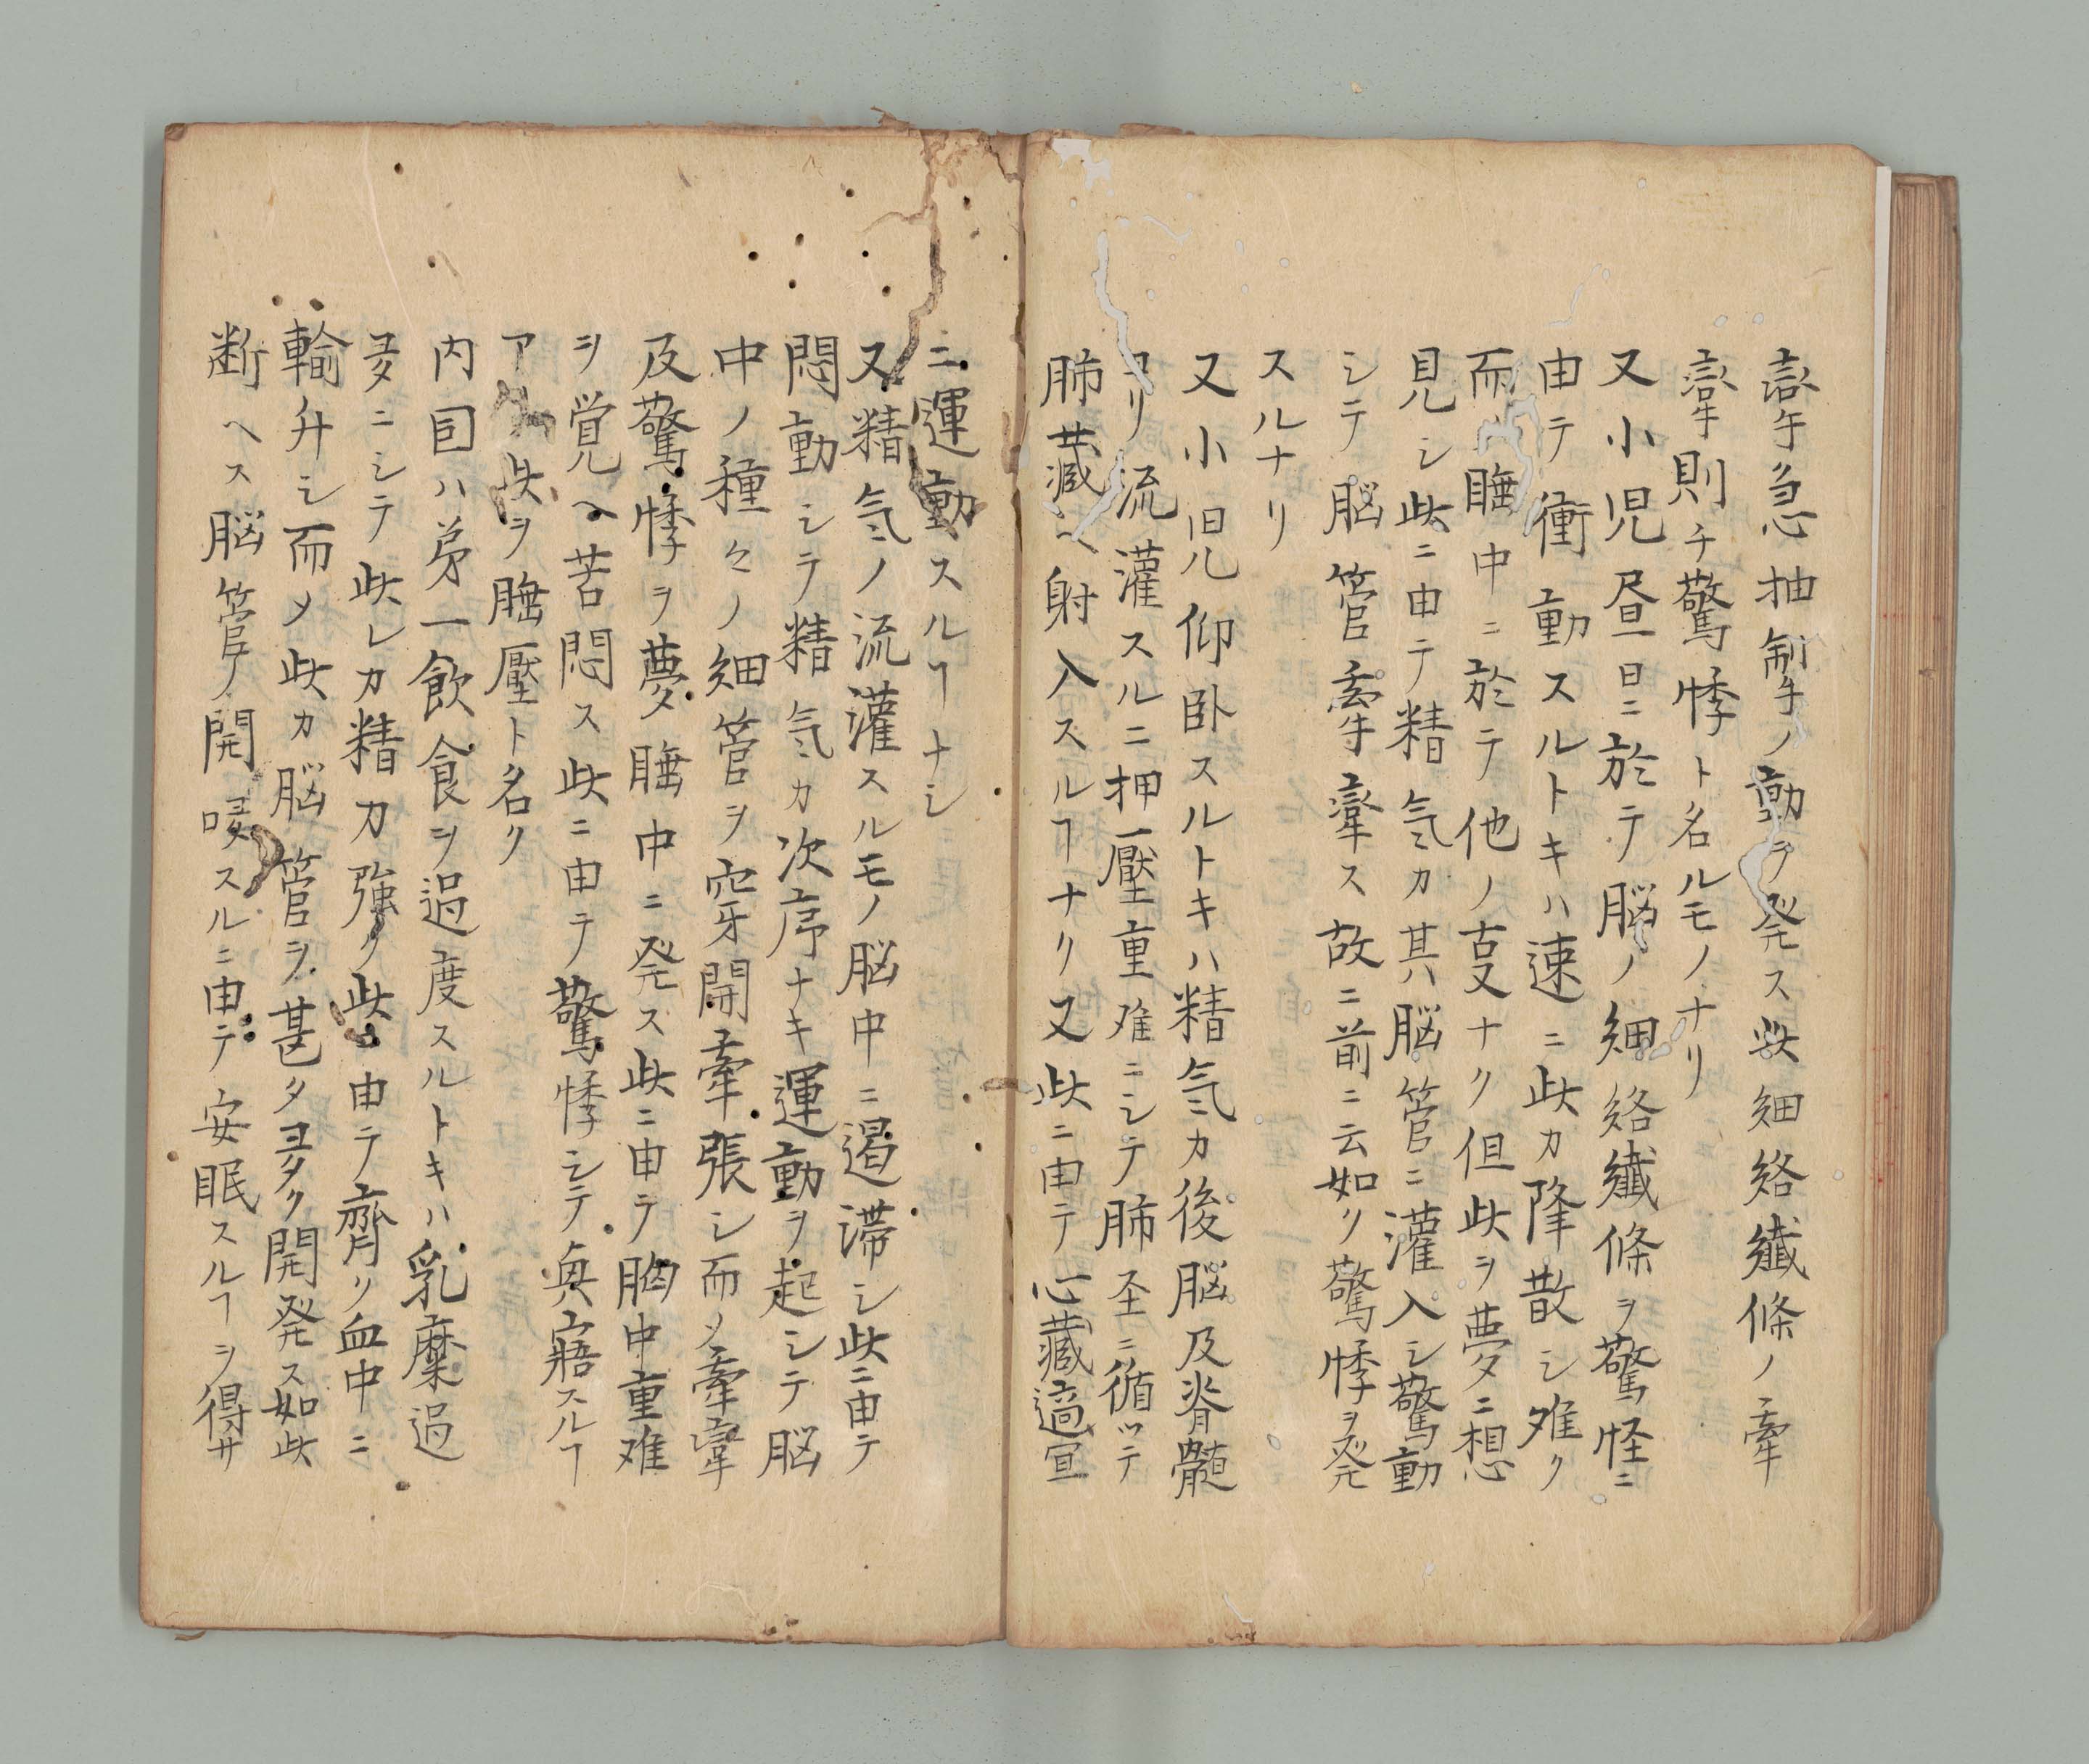 攣急抽掣ノ動ヲ発ス此細絡纖條ノ牽
攣則チ驚悸ト名ルモノナリ
又小児昼日ニ於テ脳ノ細絡纖條ヲ驚怪ニ
由テ衝動スルトキハ速ニ此カ降散シ难ク
而睡中ニ於テ他ノ叓ナク但此ヲ夢ニ想
見シ此ニ由テ精気カ其脳管ニ灌入シ驚動
シテ脳管牽攣ス故ニ前ニ云如リ驚悸ヲ発
スルナリ
又小児仰卧スルトキハ精気カ後脳及脊髄
ヨリ流灌スルニ押壓重难ニシテ肺圣ニ循ツテ
肺藏ヘ射入スルヿナリ又此ニ由テ心藏適宣
ニ運動スルヿナシ
又精気ノ流灌スルモノ脳中ニ遏滞シ此ニ由テ
悶動シテ精気カ次序ナキ運動ヲ起シテ脳
中ノ種々ノ細管ヲ穿開牽張シ而メ牽攣
及驚悸ヲ夢睡中ニ発ス此ニ由テ胸中重难
ヲ覚ヘ苦悶ス此ニ由テ驚悸シテ與寤スルヿ
ア 此ヲ睡壓ト名ク
内因ハ苐一飲食ヲ過度スルトキハ乳糜過
多ニシテ此レカ精力強ク此ニ由テ齎リ血中ニ
輸升シ而メ此カ脳管ヲ甚タ多ク開発ス如此
断ヘス脳管ノ開 スルニ由テ安眠スルヿヲ得サ